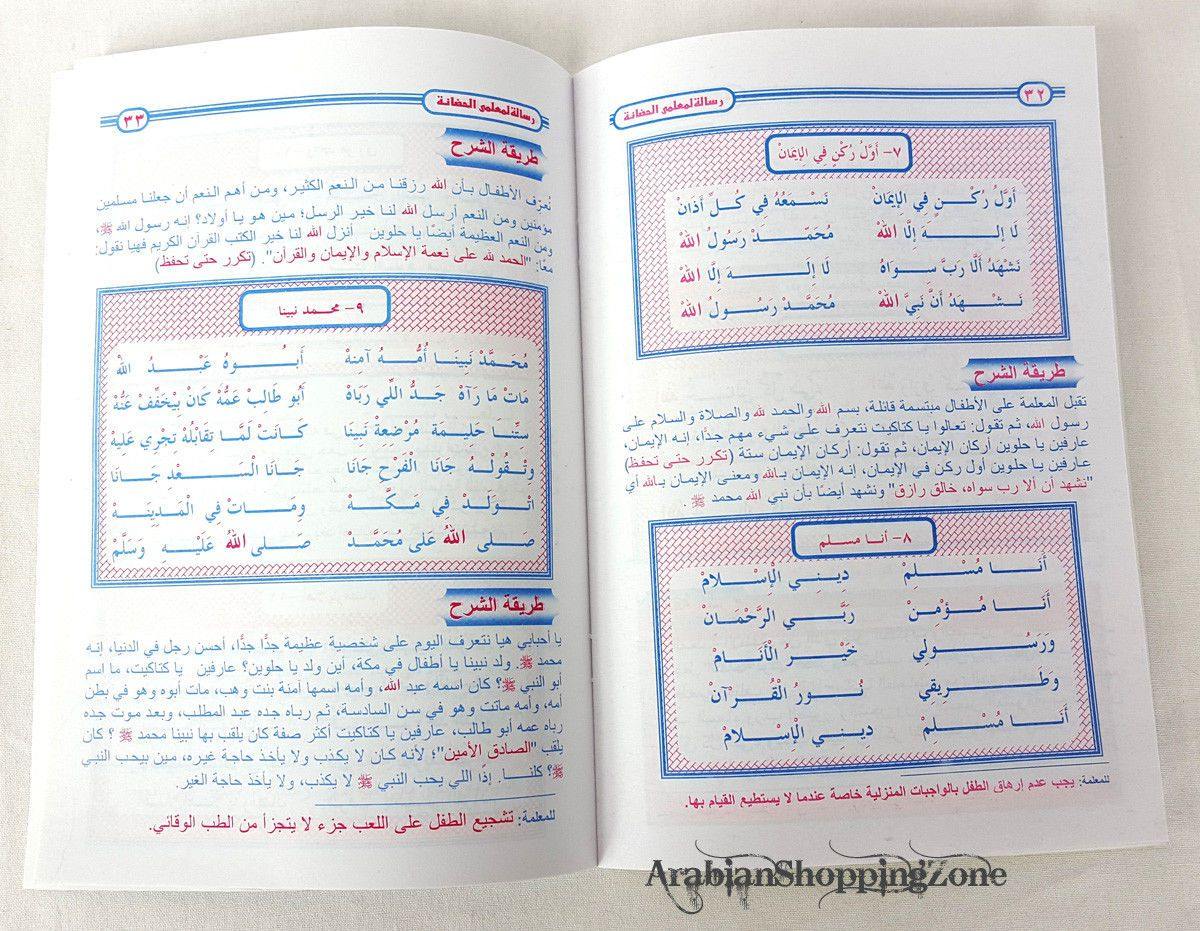 رسالة لمعلمى الحضانة
٣٢
٧- أَوَّلُ رُكْنٍ فِي الإِيمَانْ
أَوَّلُ رُكْـــنٍ فِي الإِيمَانْ نَسْمَعُهُ فِي كُلِّ أَذَانْ
لَا إِلـــــهَ إِلَّا اللهْ مُحَمَّــــدْ رَسُولُ اللهْ
نَشْهَدُ أَلَّا رَبَّ سِــوَاهْ لَا إِلَـــــهَ إِلَّا اللهْ
نَـــشْـهَدُ أَنَّ نَبِيَّ اللهْ مُحَمَّدْ رَسُــولُ اللهْ
طريقة الشرح
تقبل المعلمة على الأطفال مبتسمة قائلة، بسم الله والحمد لله والصلاة والسلام على
رسول الله، ثم تقول: تعالوا يا كتاكيت نتعرف على شيء مهم جدًّا، إنه الإيمان،
عارفين يا حلوين أركان الإيمان، ثم تقول: أركان الإيمان ستة (تكرر حتى تحفظ)
عارفين يا حلوين أول ركن في الإيمان، إنه الإيمان بـالله ومعنى الإيمان بـالله أي
"نشهد أن ألا رب سواه، خالق رازق" ونشهد أيضًا بأن نبي الله محمد ﷺ .
٨- أنـا مسـلم
أَنَـــا مُسْـــلِمْ دِينِـي الْإِسْــلامْ
أَنَـــا مُـــؤْمِنْ رَبِّـي الرَّحْمَـانْ
وَرَسُـــــولِي خَيْـــرُ الْأَنَـــامْ
وَطَـــــرِيقِي نُـــورُ الْقُـــرْآنْ
أَنَـــا مُسْـلِمْ دِينِـي الْإِسْــلامْ
للمعلمة: يجب عدم إرهاق الطفل بالواجبات المنزلية خاصة عندما لا يستطيع القيام بها.
رسالة لمعلمى الحضانة
٣٣
طريقة الشرح
نُعرّف الأطفال بـأن الله رزقنا من النعم الكثير، ومن أهم النعم أن جعلنا مسلمين
مؤمنين ومن النعم أرسل الله لنا خير الرسل؛ مين هو يا أولاد؟ إنه رسول الله ﷺ،
ومن النعم العظيمة أيضًا يا حلوين أنزل الله لنا خير الكتب القرآن الكريم فهيا نقول
معًا: "الحمد لله على نعمة الإسلام والإيمان والقرآن". (تكرر حتى تحفظ)
٩- محمد نبينا
مُحَمَّدْ نَبِينَا أُمُّـــهُ آمِنهْ أَبُـــوهُ عَبْـــدُ الله
مَاتْ مَا رَآهْ جَـدُّ اللِّي رَبَاهْ أَبُو طَالِبْ عَمُّهْ كَانْ بِيْخَفِّفْ عَنُّهْ
سِتِّنـا حَلِيـمَة مُرْضِعِةْ نَبِينَا كَـانَتْ لَمَّا تِقَابْلُهْ تِجْرِي عَلِيهْ
وِتْقُولُـهْ جَانَا الْفَرْحِ جَانَا جَـانَا الْسَـــعْدِ جَـــانَا
اتْوَلَـدْ فِي مَـكَّـــهْ وِمَـــاتْ فِي الْمَدِينَـــهْ
صَـلى اللهُ عَلى مُحَمَّـدْ صَـلى اللهُ عَلَيْــهِ وَسَلَّمْ
طريقة الشرح
يا أحبابي هيا نتعرف اليوم على شخصية عظيمة جدًّا جدًّا، أحسن رجل في الدنيا، إنه
محمد ﷺ. ولد نبينا يا أطفال في مكة، أين ولد يا حلوين؟ عارفين يا كتاكيت، ما اسم
أبو النبي ﷺ؟ كان اسمه عبد الله، وأمه اسمها آمنة بنت وهب، مات أبوه وهو في بطن
أمه، وأمه ماتت وهو في سن السادسة، ثم رباه جده عبد المطلب، وبعد موت جده
رباه عمه أبو طالب، عارفين يا كتاكيت أكثر صفة كان يلقب بها نبينا محمد ﷺ ؟ كان
يلقب "الصادق الأمين"؛ لأنه كان لا يكذب ولا يأخذ حاجة غيره، مين بيحب النبي
ﷺ؟ كلنـا. إذًا اللي يحب النبي ﷺ لا يكذب، ولا يأخذ حاجة الغير.
للمعلمة: تشجيع الطفل على اللعب جزء لا يتجزأ من الطب الوقائي.
ArabianShoppingZone